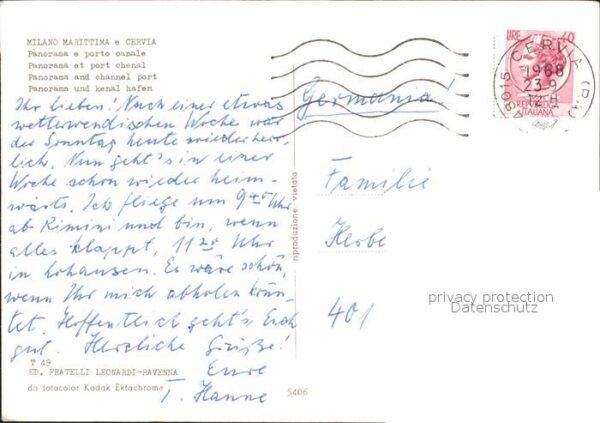 MILANO MARITTIMA e CERVIA
Panorama e porto canale
Panorama et port chenal
Panorama and channel port
Panorama und kenal hafen
Ihr lieben! Nach einer etwas
wetterwendischen Woche war
der Sonntag heute wieder herr-
lich. Nun geht's in einer
Woche schon wieder heim-
wärts. Ich fliege um 9 Uhr
ab Rimini und bin, wenn
alles klappt, 11 20 Uhr
in Lohausen. Es wäre schön,
wenn Ihr mich abholen könn-
tet. Hoffentlich geht's Euch
gut. Herzliche Grüße!
Eure
T. Hanne
T 49
ED. FRATELLI LEONARDI-RAVENNA
da fotocolor Kodak Ektachrome
5406
riproduzione vietata
Germania!
LIRE 40
48015 CERVIA (RA)
1968
23-9
REPUBBLICA
ITALIANA
Familie
Herbe
401
privacy protection
Datenschutz